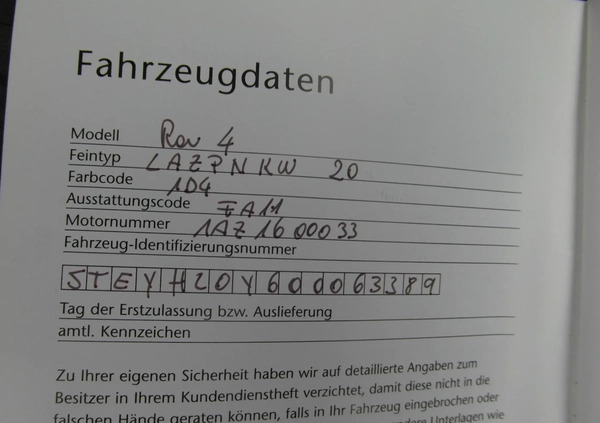 Fahrzeugdaten
Modell Rav 4
Feintyp LAZPNKW 20
Farbcode 1D4
Ausstattungscode FA11
Motornummer 1AZ1600033
Fahrzeug-Identifizierungsnummer
STEYH20Y600063389
Tag der Erstzulassung bzw. Auslieferung
amtl. Kennzeichen
Zu Ihrer eigenen Sicherheit haben wir auf detaillierte Angaben zum
Besitzer in Ihrem Kundendienstheft verzichtet, damit diese nicht in die
falschen Hände geraten können, falls in Ihr Fahrzeug eingebrochen oder
Unterlagen wie